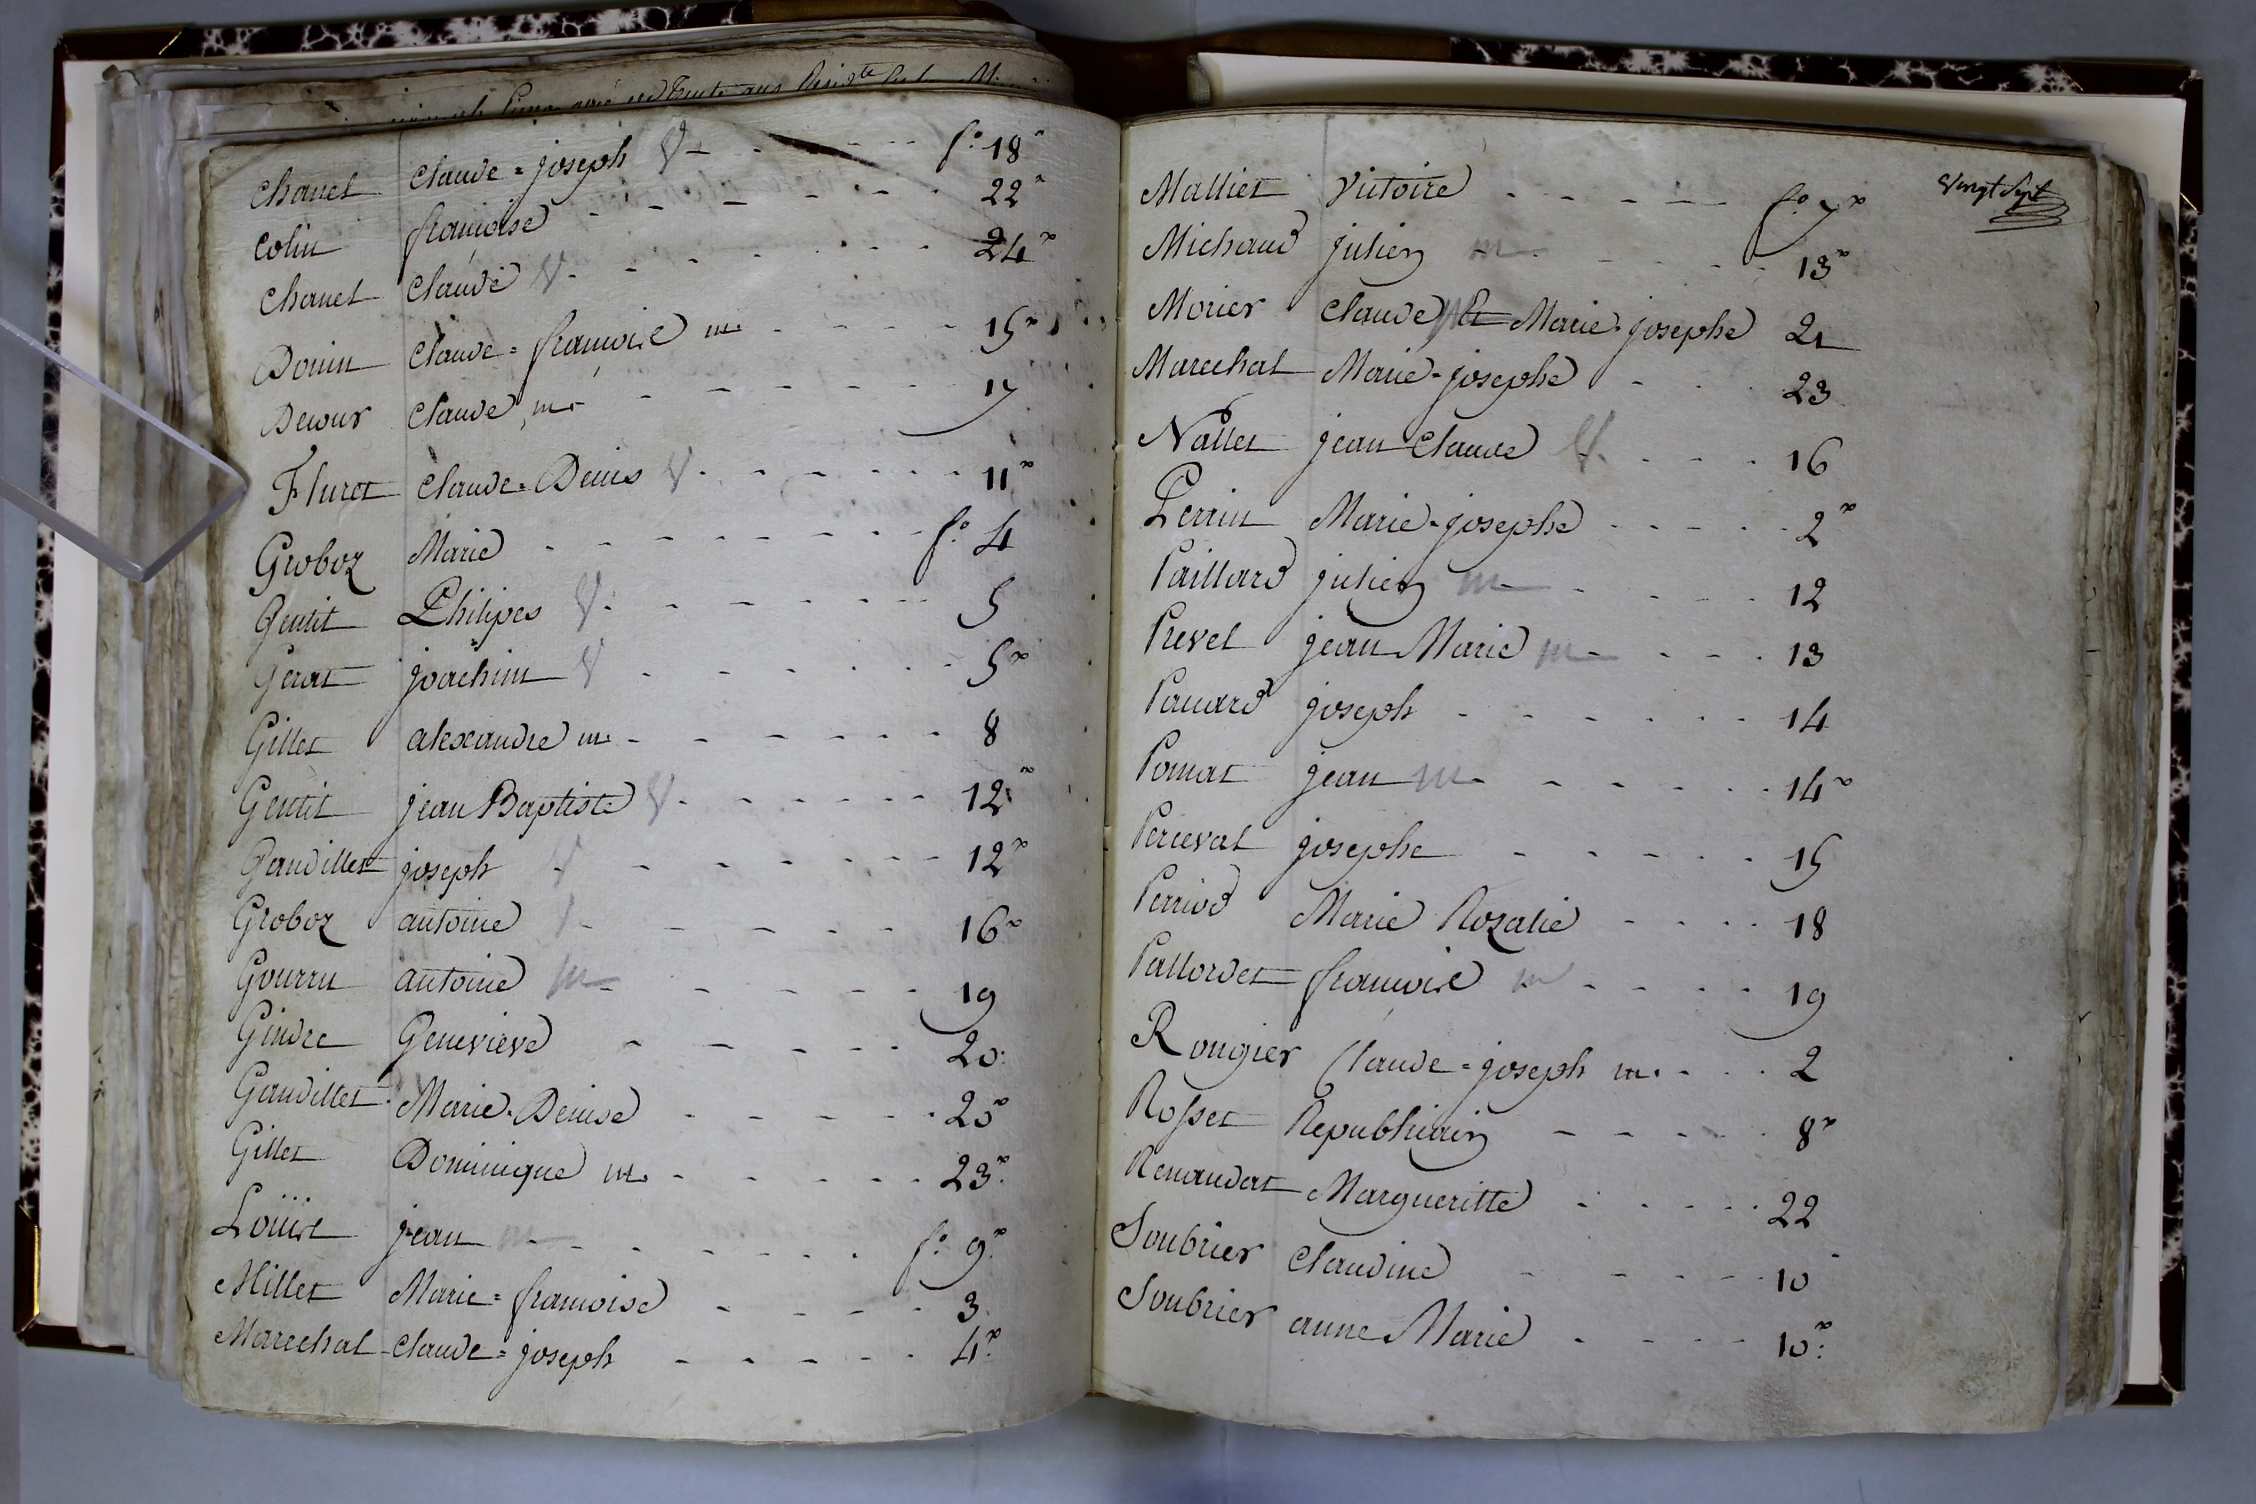 Chanel claude = joseph V f.o 18 v
Colin francoise 22 v
Chanel claude V 24 v
Donin claude = francois m 15 v
Decour claude m 17
Fluret claude = Denis V 11 v
Groboz Marie f.o 4
Gentit Philipes V 5
Gerat joachim V 5 v
Gillet alexandre m 8
Gentit jean Baptiste V 12 v
Gaudillet joseph V 12 v
Groboz antoine V 16 v
Gourru antoine m 19
Gindre Genevieve 20
Gaudillet Marie = Denise 20 v
Gillet Dominique m 23 v
Loüis jean m f.o 9 v
Millet Marie = francoise 3
Marechal claude = joseph 4 v
Vingt Sept
Malliet Victoire f.o 7 v
Michaud julien m 13 v
Morier claude m Et Marie = josephe 21
Marechal Marie = josephe 23
Nallet jean claude V 16
Perrin Marie = josephe 2 v
Paillard julien m 12
Prevel jean Marie m 13
Panard joseph 14
Pomat jean m 14 v
Perceval josephe 15
Perriod Marie Rozalie 18
Pallordet francois m 19
Rougier Claude = joseph m 2
Rosset Republicain 8 v
Renaudat Margueritte 22
Soubrier claudine 10
Soubrier anne Marie 10 v